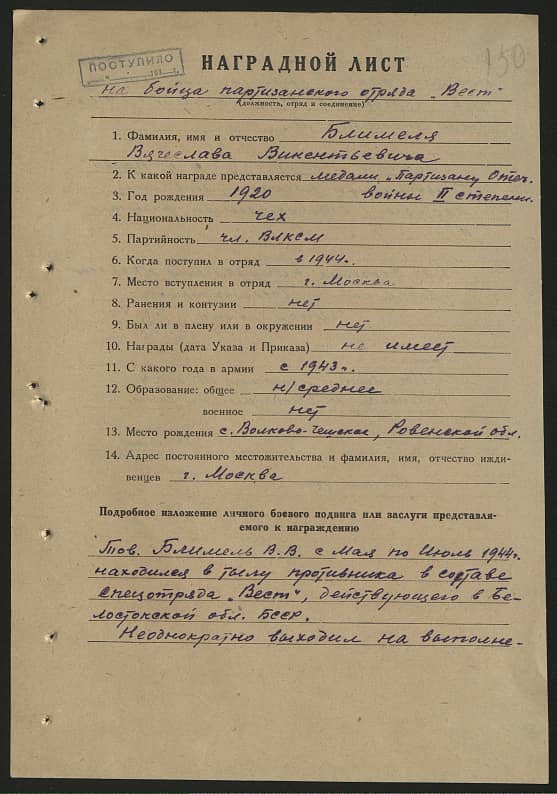 ПОСТУПИЛО
150
НАГРАДНОЙ ЛИСТ
на бойца партизанского отряда „Вест"
(должность, отряд и соединение)
1. Фамилия, имя и отчество Блимеля
Вячеслава Викентьевича
2. К какой награде представляется медали „Партизану Отеч.
3. Год рождения 1920 войны II степени.
4. Национальность чех
5. Партийность чл. ВЛКСМ
6. Когда поступил в отряд в 1944г.
7. Место вступления в отряд г. Москва
8. Ранения и контузии нет
9. Был ли в плену или в окружении нет
10. Награды (дата Указа и Приказа) не имеет
11. С какого года в армии с 1943г.
12. Образование: общее н/среднее
военное нет
13. Место рождения с. Волково-Чешское, Ровенской обл.
14. Адрес постоянного местожительства и фамилия, имя, отчество ижди-
венцев г. Москва
Подробное изложение личного боевого подвига или заслуги представля-
емого к награждению
Тов. Блимель В.В. с Мая по Июль 1944г.
находился в тылу противника в составе
спецотряда „Вест", действующего в Бе-
лостокской обл. БССР.
Неоднократно выходил на выполне-